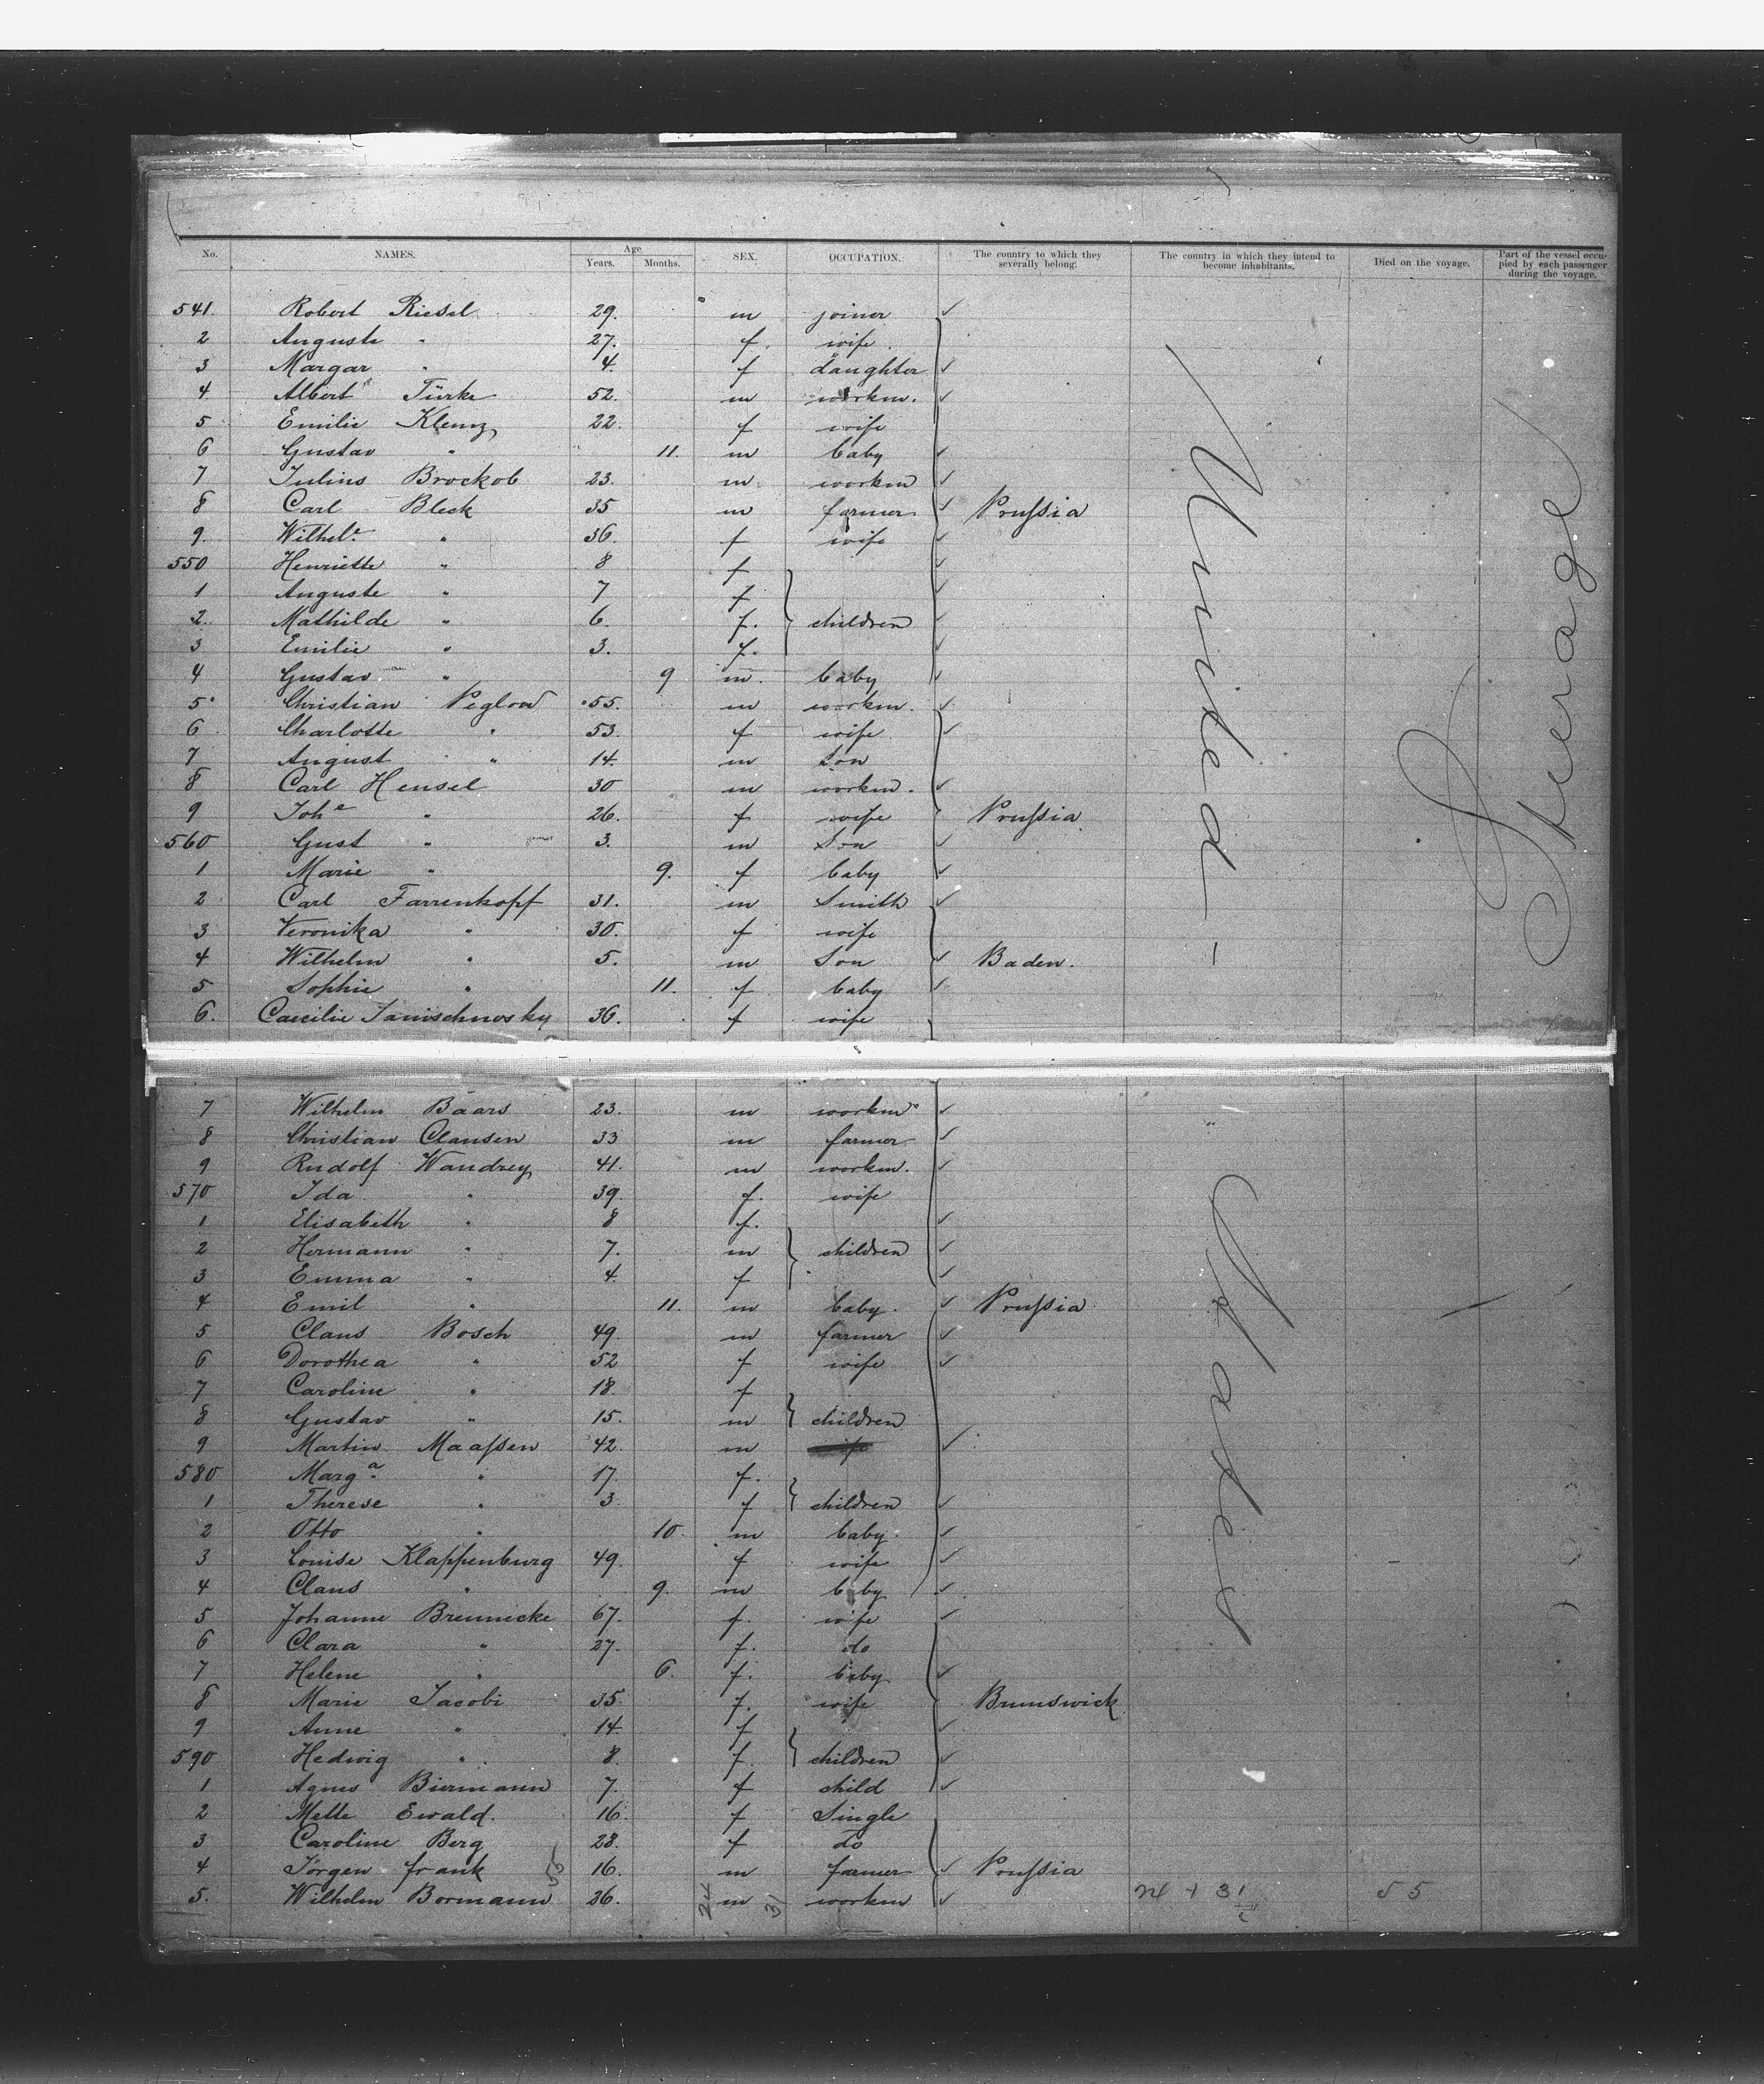 No. NAMES. Age Years. Months. SEX. OCCUPATION. The country to which they severally belong. The country in which they intend to become inhabitants. Died on the voyage. Part of the vessel occupied by each passenger during the voyage.
541. Robert Riesel 29. m joiner
2 Auguste " 27. f. wife
3 Margar " 4. f daughter
4. Albert Türke 52. m workm.
5 Emilie Klemz 22. f wife
6 Gustav " 11. m baby
7 Julius Brockob 23. m workm
8 Carl Bleck 35 m farmer Prußia
9. Wilhel.e " 36. f wife
550 Henriette " 8 f
1 Auguste " 7 f
2. Mathilde " 6. f. children
3 Emilie " 3. f.
4 Gustav " 9 m. baby
5 Christian Peglow 55. m workm.
6 Charlotte " 53. f wife
7 August " 14. m Son
8 Carl Hensel 30 m workm.
9 Joh.e " 26. f wife Prußia
560 Gust " 3. m Son
1 Marie " 9. f baby
2 Carl Farrenkopf 31. m Smith
3 Veronika " 30. f wife
4 Wilhelm " 5. m Son Baden.
5 Sophie " 11. f baby
6. Caecilie Janischnosky 36. f wife
7 Wilhelm Baars 23. m workm
8 Christian Clausen 33 m farmer
9 Rudolf Wandrey 41. m workm.
570 Ida " 39. f. wife
1 Elisabeth " 8 f.
2 Hermann " 7. m children
3 Emma " 4. f
4 Emil " 11. m baby. Prußia
5 Claus Bosch 49. m farmer
6 Dorothea " 52 f wife
7 Caroline " 18. f
8 Gustav " 15. m children
9 Martin Maaßen 42. m wife
580 Marg.a " 17. f.
1 Therese " 3. f children
2 Otto " 10. m baby
3 Louise Klappenburg 49. f wife
4 Claus " 9. m baby
5 Johanne Brennecke 67. f. wife
6 Clara " 27. f. do
7 Helene " 6. f. baby
8 Marie Jacobi 35. f. wife Brunswick
9 Anne " 14. f
590 Hedwig " 8. f. children
1 Agnes Biermann 7. f child
2 Mette Ewald. 16. f Single
3 Caroline Berg 28. f do
4 Jörgen frank 16. m farmer Prußia
5. Wilhelm Bormann 26. m workm
United States
Steerage
55
24
31
24 + 31
55